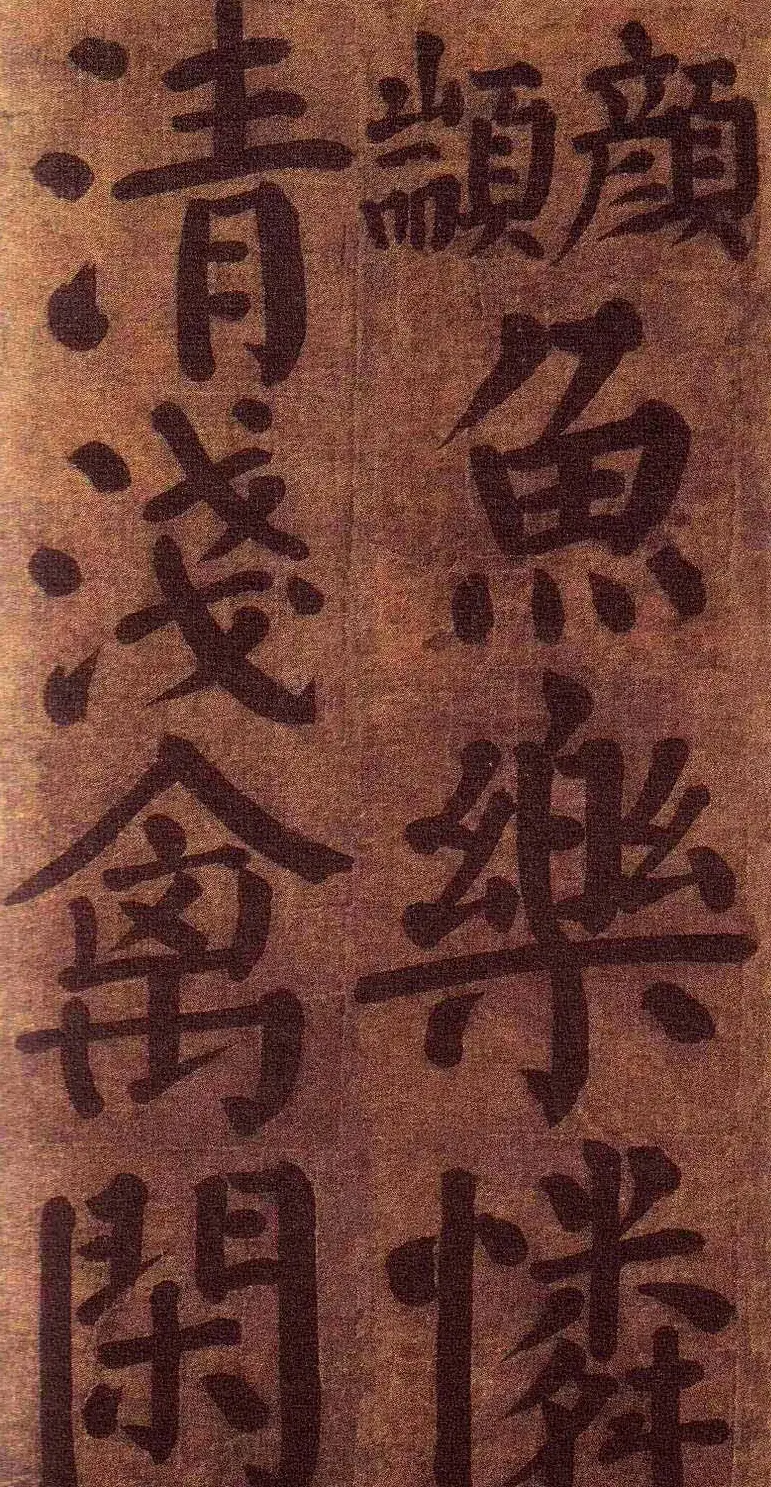 顔顓魚樂憐
清淺禽閑